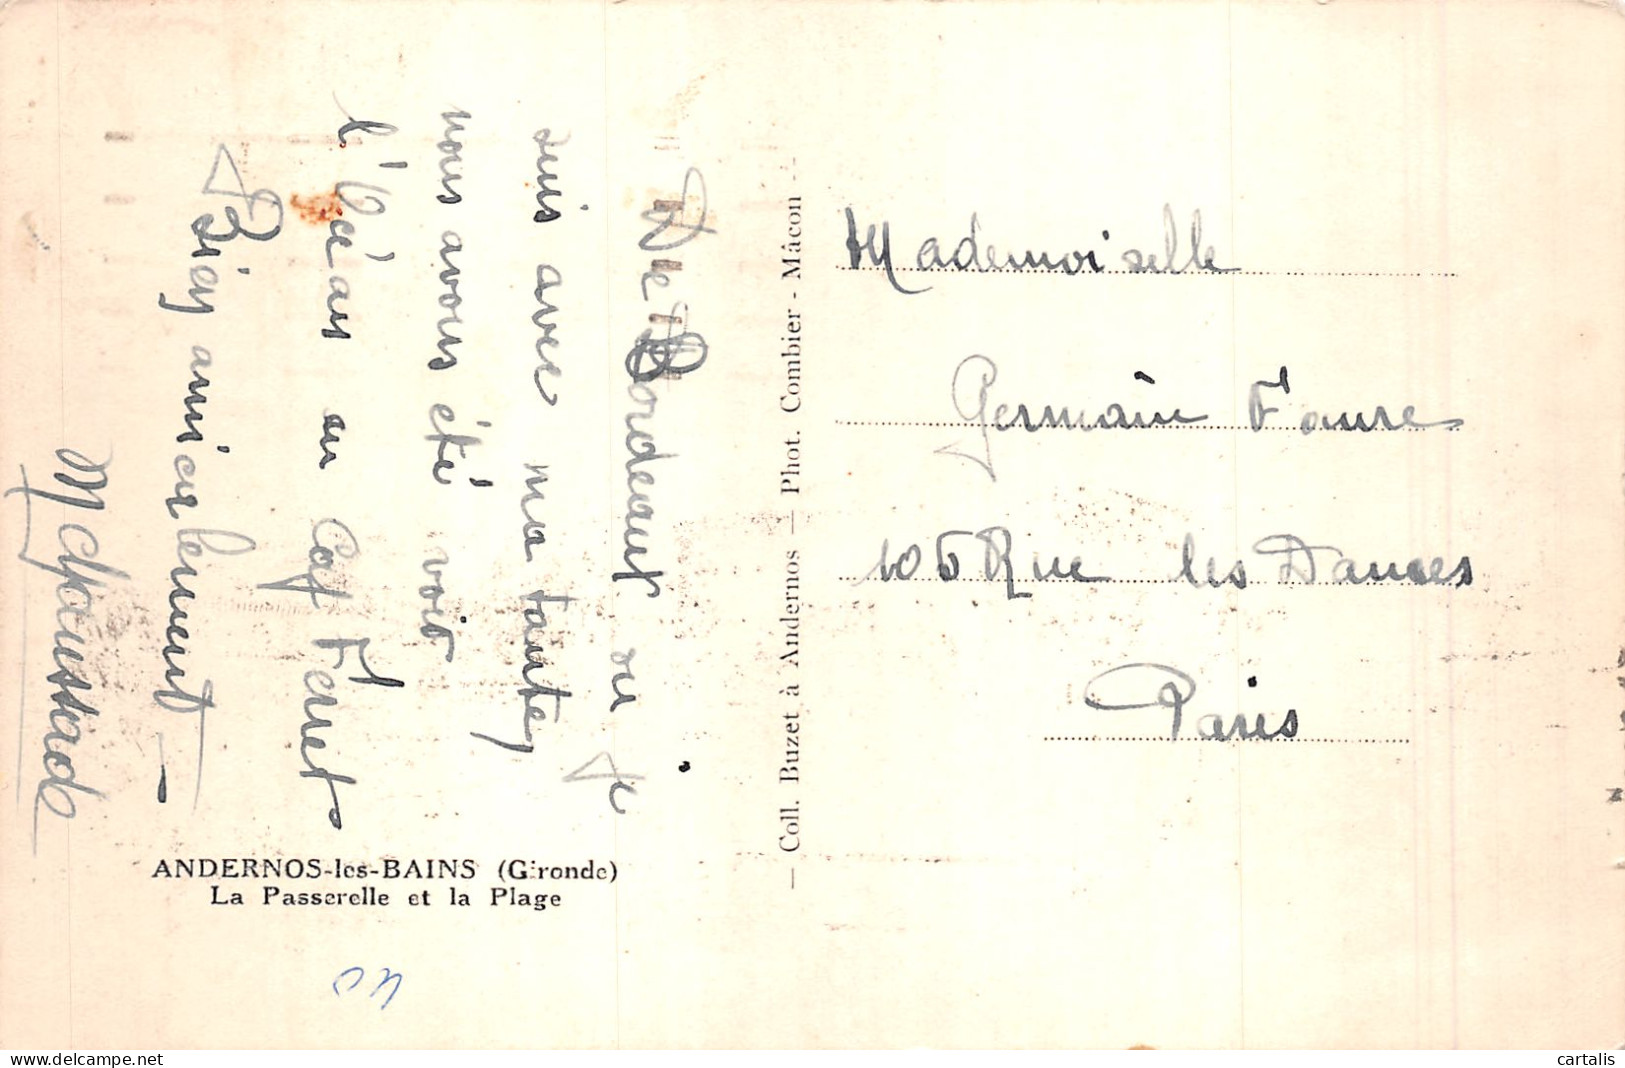 De Bordeaux ou je
suis avec ma tante,
nous avons été voir
l'Océan au Cap Ferret
Bien amicalement –
ANDERNOS-les-BAINS (Gironde)
La Passerelle et la Plage
— Coll. Buzet à Andernos — Phot. Combier - Mâcon -
Mademoiselle
Germain Faure
105 Rue les Dames
Paris
cartalis